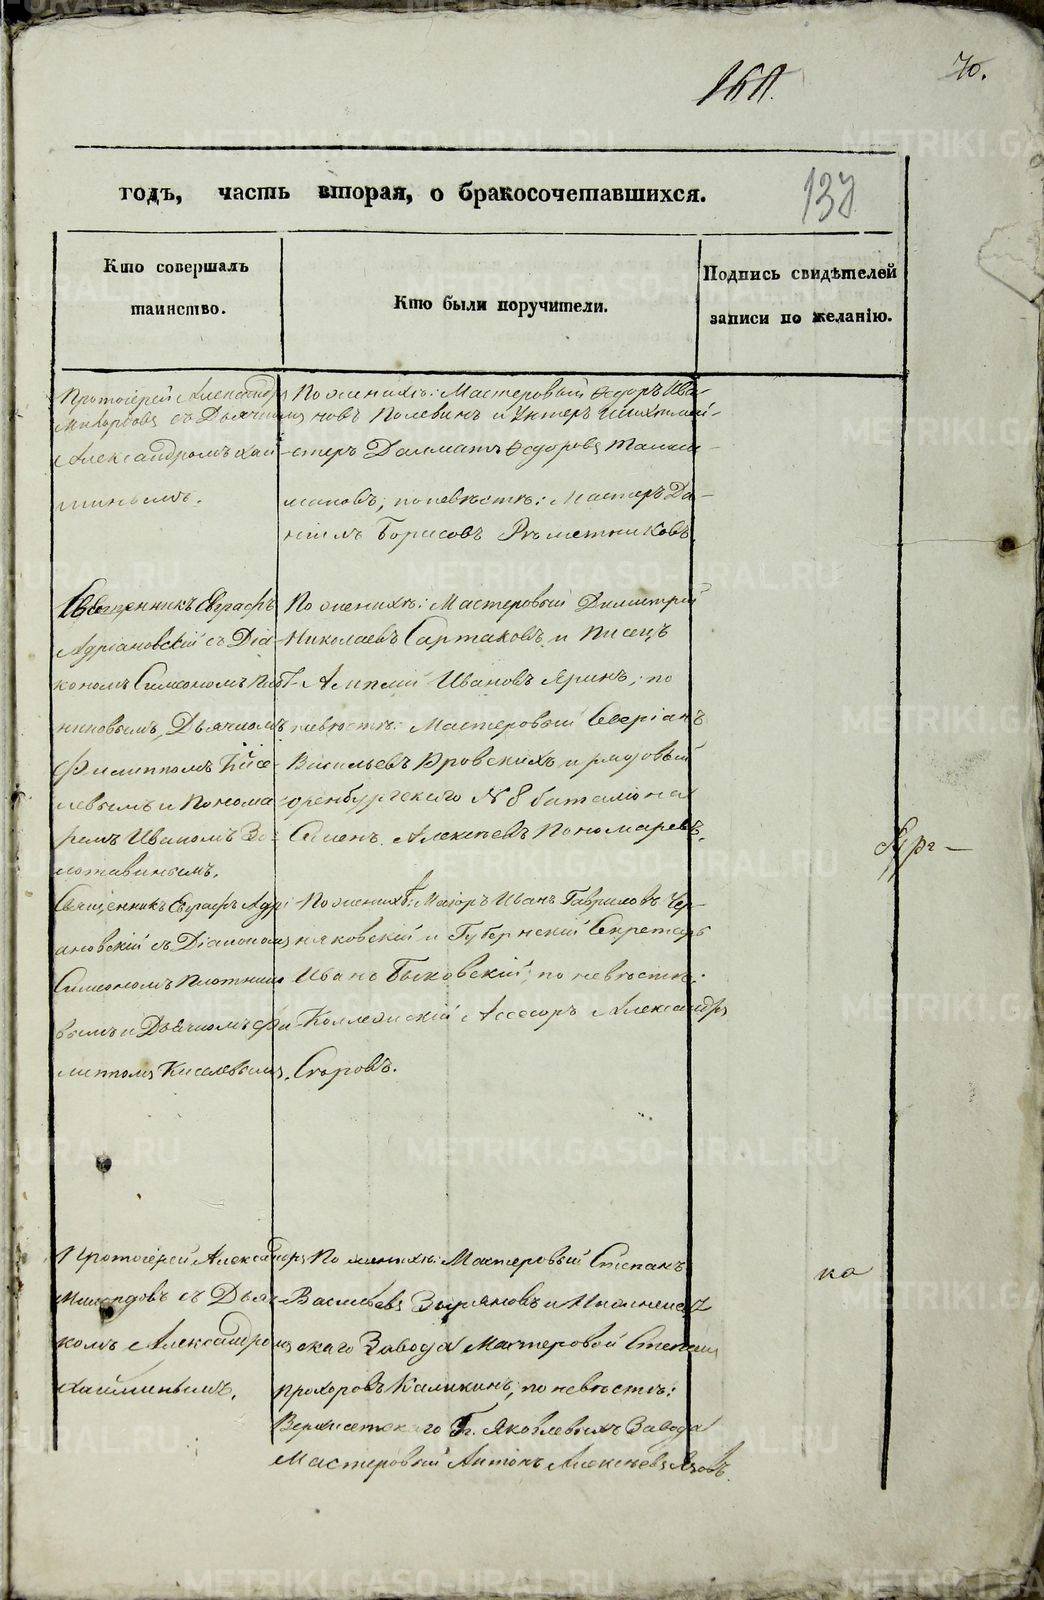 70.
137
годъ, часть вторая, о бракосочетавшихся.
Кто совершалъ
таинство.
Кто были поручители.
Подпись свидѣтелей
записи по желанію.
Протоіерей Александръ
съ Дьячкомъ
Александромъ
По женихѣ: Мастеровый Ѳедоръ Ива-
новъ Полевинъ и Унтеръ Шихтмей-
стеръ Далматъ Ѳедоровъ
по невѣстѣ: Мастеръ Да-
ніилъ Борисовъ Рѣшетниковъ.
Священникъ Евграфъ
Адріановскій съ Діа-
кономъ Симеономъ Плот-
никовымъ, Дьячкомъ
Филиппомъ Кисе-
левымъ и Понома-
ремъ Иваномъ Зо-
лотавинымъ.
По женихѣ: Мастеровый Димитрій
Николаевъ Сартаковъ и Писецъ
Ивановъ Яринъ; по
невѣстѣ: Мастеровый Сверіанъ
Васильевъ и рядовый
Оренбургскаго № 8 баталіона
Семенъ Алексѣевъ Пономаревъ.
Священникъ Евграфъ Адрі-
ановскій съ Діакономъ
Симеономъ Плотнико-
вымъ и Дьячкомъ Фи-
липпомъ Киселевымъ.
По женихѣ: Маіоръ Иванъ Гавриловъ Чер-
няковскій и Губернскій Секретарь
Иванъ Быковскій; по невѣстѣ:
Коллежскій Ассесоръ Александръ
Егоровъ.
Протоіерей Александръ
съ Дьяч-
комъ Александромъ
По женихѣ: Мастеровый Степанъ
Васильевъ Зыряновъ и
скаго Завода Мастеровой Степанъ
Прохоровъ Каликинъ; по невѣстѣ:
Верхисетскаго Гг. Яковлевыхъ Завода
Мастеровый Антонъ Алексѣевъ
ко
METRIKI.GASO-URAL.RU